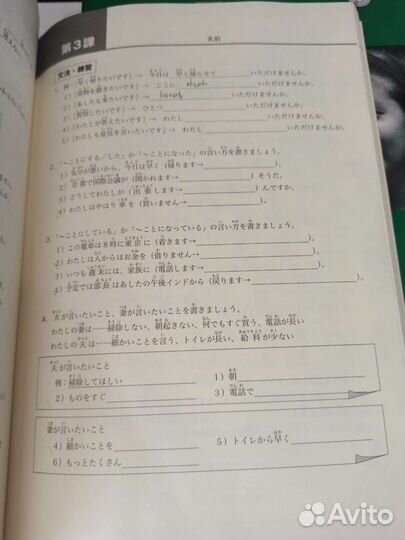 第3課
名前
文法・練習
1. 例：[早く帰りたいです] → 今日は 早く帰らせて いただけませんか。
1) [荷物を置きたいです] → ここに いただけませんか。
2) [あしたも来たいです] → いただけませんか。
3) [質問したいです] → ひとつ いただけませんか。
4) [わたしが答えたいです] → わたし いただけませんか。
5) [わたしも意見を言いたいです] → わたし いただけませんか。
2. 「～ことにする／した」か「～ことになった」の言い方を書きましょう。
1) 気分が悪いから、今日は早く（帰ります→ ）。
2) 京都で国際会議が（開かれます→ ）そうだ。
3) どうしてわたしが（出張します→ ）んですか。
4) わたしはやはり車を（買いません→ ）。
3. 「～ことにしている」か「～ことになっている」の言い方を書きましょう。
1) この電車は8時に東京に（着きます→ ）。
2) わたしは人からはお金を（借りません→ ）。
3) いつも週末には、家族に（電話します→ ）。
4) 予定では部長はあしたの午後インドから（戻ります→ ）。
4. 夫が言いたいこと、妻が言いたいことを書きましょう。
わたしの妻は……掃除しない、朝起きない、何でもすぐ買う、電話が長い
わたしの夫は……細かいことを言う、トイレが長い、給料が少ない
夫が言いたいこと
例：掃除してほしい 1) 朝
2) ものをすぐ 3) 電話で
妻が言いたいこと
4) 細かいことを 5) トイレから早く
6) もっとたくさん
Avito